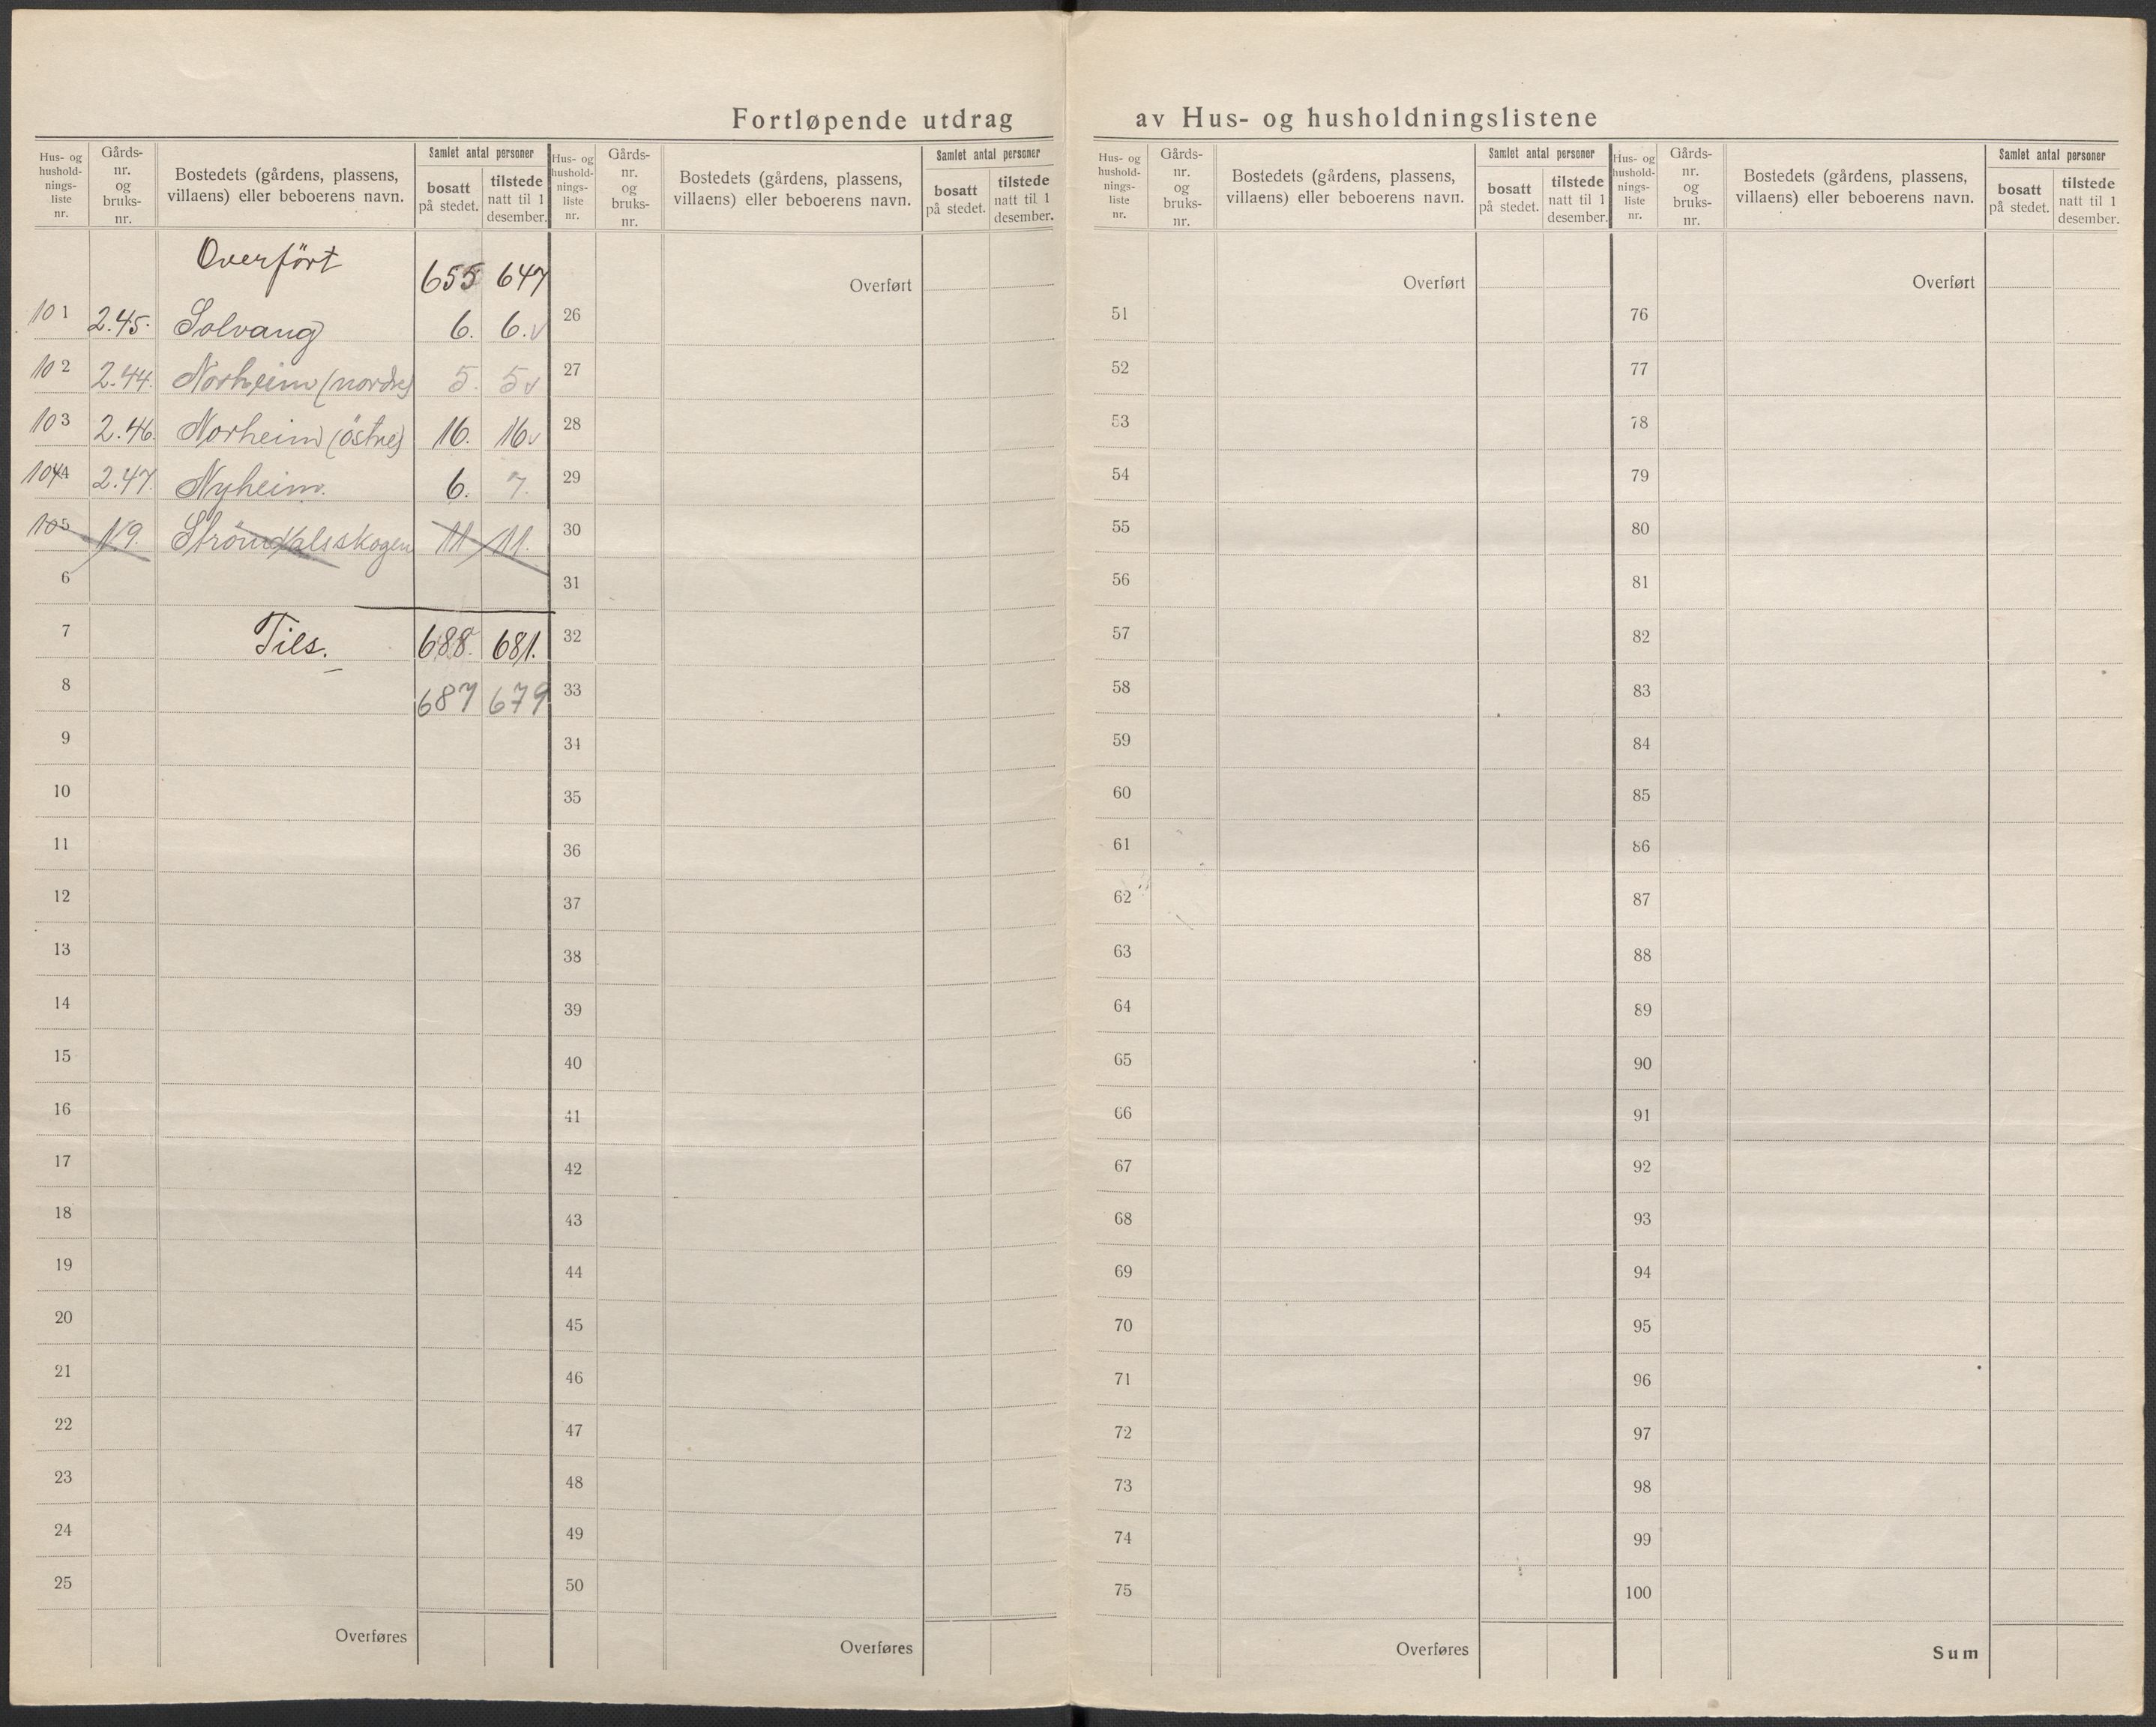 Fortløpende utdrag av Hus- og husholdningslistene
Hus- og hushold- nings- liste nr.
Gårds- nr. og bruks- nr.
Bostedets (gårdens, plassens, villaens) eller beboerens navn.
Samlet antal personer
bosatt på stedet.
tilstede natt til 1 desember.
Hus- og hushold- nings- liste nr.
Gårds- nr. og bruks- nr.
Bostedets (gårdens, plassens, villaens) eller beboerens navn.
Samlet antal personer
bosatt på stedet.
tilstede natt til 1 desember.
Hus- og hushold- nings- liste nr.
Gårds- nr. og bruks- nr.
Bostedets (gårdens, plassens, villaens) eller beboerens navn.
Samlet antal personer
bosatt på stedet.
tilstede natt til 1 desember.
Hus- og hushold- nings- liste nr.
Gårds- nr. og bruks- nr.
Bostedets (gårdens, plassens, villaens) eller beboerens navn.
Samlet antal personer
bosatt på stedet.
tilstede natt til 1 desember.
Overfört 655 647
101 2.45. Solvang 6. 6.
102 2.44. Norheim (nordre) 5. 5
103 2.46. Norheim (östre) 16. 16
104 2.47. Nyheim. 6. 7.
105 1/9. Strömdalsskogen 11 11.
6
7 Tils. 688. 681.
8 687 679
9
10
11
12
13
14
15
16
17
18
19
20
21
22
23
24
25
Overføres
Overført
26
27
28
29
30
31
32
33
34
35
36
37
38
39
40
41
42
43
44
45
46
47
48
49
50
Overføres
Overført
51
52
53
54
55
56
57
58
59
60
61
62
63
64
65
66
67
68
69
70
71
72
73
74
75
Overføres
Overført
76
77
78
79
80
81
82
83
84
85
86
87
88
89
90
91
92
93
94
95
96
97
98
99
100
Sum